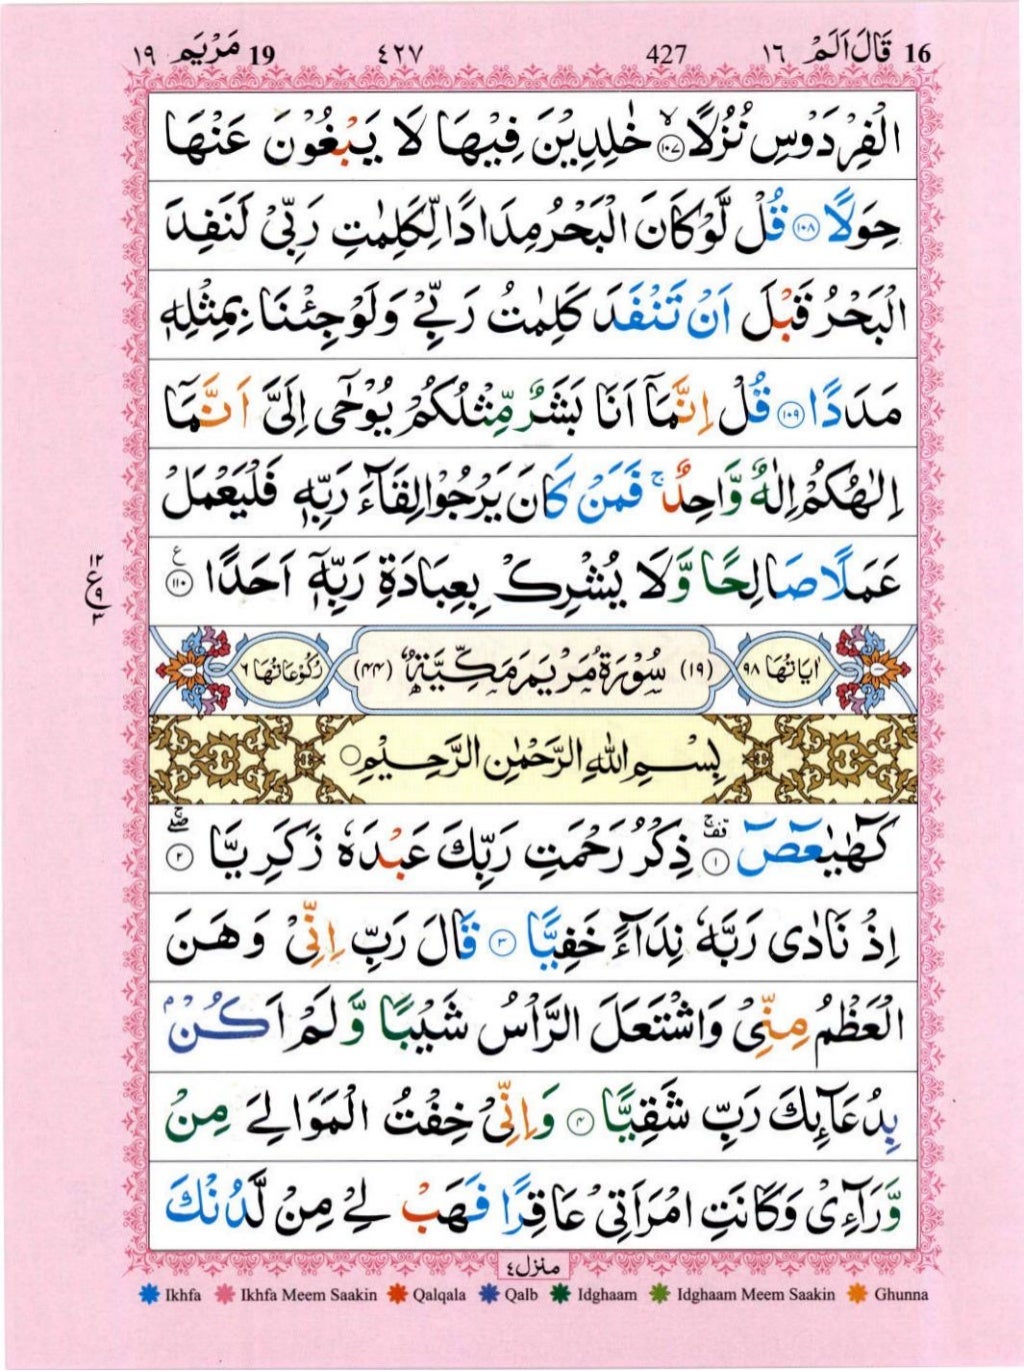 16 قَالَ اَلَمْ ١٦ 427 ٤٢٧ 19 مَرْيَم ١٩
الْفِرْدَوْسِ نُزُلًا ۙ۝١٠٧ خٰلِدِيْنَ فِيْهَا لَا يَبْغُوْنَ عَنْهَا
حِوَلًا ۝١٠٨ قُلْ لَّوْ كَانَ الْبَحْرُ مِدَادًا لِّكَلِمٰتِ رَبِّيْ لَنَفِدَ
الْبَحْرُ قَبْلَ اَنْ تَنْفَدَ كَلِمٰتُ رَبِّيْ وَلَوْ جِئْنَا بِمِثْلِهٖ
مَدَدًا ۝١٠٩ قُلْ اِنَّمَآ اَنَا بَشَرٌ مِّثْلُكُمْ يُوْحٰٓى اِلَيَّ اَنَّمَآ
اِلٰهُكُمْ اِلٰهٌ وَّاحِدٌ ۚ فَمَنْ كَانَ يَرْجُوْا لِقَآءَ رَبِّهٖ فَلْيَعْمَلْ
عَمَلًا صَالِحًا وَّلَا يُشْرِكْ بِعِبَادَةِ رَبِّهٖٓ اَحَدًا ۝١١٠ ع
١٢ ع ٩ ٣
اٰيَاتُهَا ٩٨ (١٩) سُوْرَةُ مَرْيَمَ مَكِّيَّةٌ (٤٤) رُكُوْعَاتُهَا ٦
بِسْمِ اللّٰهِ الرَّحْمٰنِ الرَّحِيْمِ ۝
كٓهٰيٰعٓصٓ ۝١ ذِكْرُ رَحْمَتِ رَبِّكَ عَبْدَهٗ زَكَرِيَّا ۝٢
اِذْ نَادٰى رَبَّهٗ نِدَآءً خَفِيًّا ۝٣ قَالَ رَبِّ اِنِّيْ وَهَنَ
الْعَظْمُ مِنِّيْ وَاشْتَعَلَ الرَّاْسُ شَيْبًا وَّلَمْ اَكُنْۢ
بِدُعَآئِكَ رَبِّ شَقِيًّا ۝٤ وَاِنِّيْ خِفْتُ الْمَوَالِيَ مِنْ
وَّرَآءِيْ وَكَانَتِ امْرَاَتِيْ عَاقِرًا فَهَبْ لِيْ مِنْ لَّدُنْكَ
منزل ٤
Ikhfa Ikhfa Meem Saakin Qalqala Qalb Idghaam Idghaam Meem Saakin Ghunna